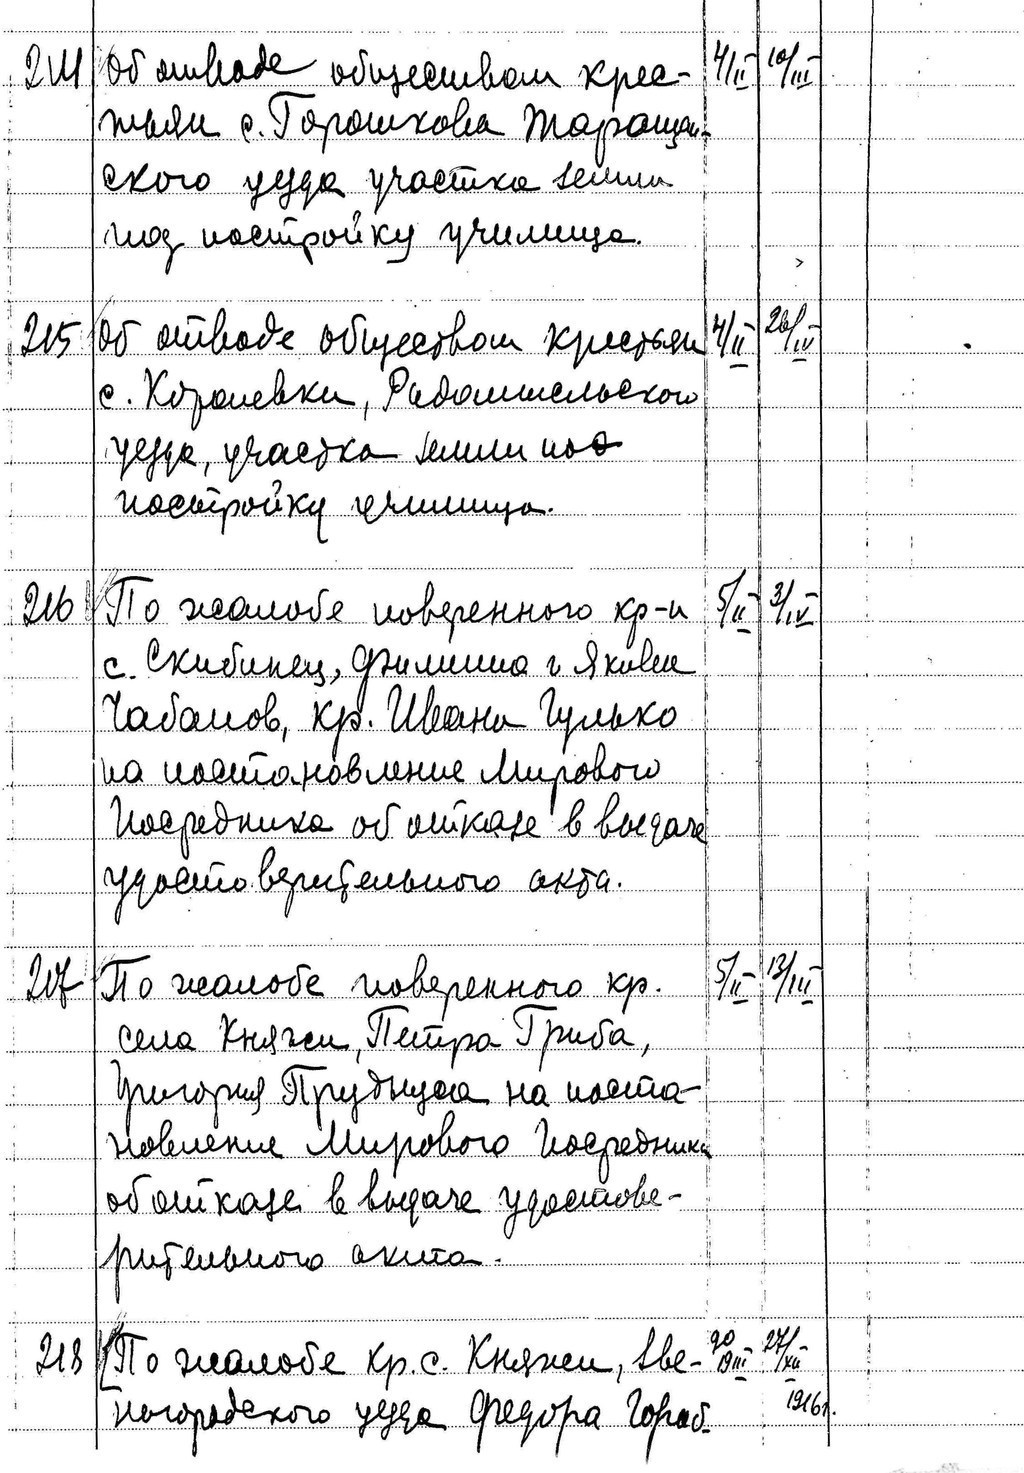 214 Об отводе обществом крес- 4/II 10/III
тьян с. Горошкова Таращан-
ского уезда участка земли
под постройку училища.
215 Об отводе обществом крестьян 4/II 26/IV
с. Королевки, Радомысльского
уезда, участка земли под
постройку училища.
216 По жалобе поверенного кр-н 5/II 3/IV
с. Скибинец, Филиппа и Якова
Чабанов, кр. Ивана Гулько
на постановление Мирового
Посредника об отказе в выдаче
удостоверительного акта.
217 По жалобе поверенного кр. 5/II 13/III
села Княжи, Петра Гриба,
Григория Прудыуса на поста-
новление Мирового Посредника
об отказе в выдаче удостове-
рительного акта.
218 По жалобе кр. с. Княжи, Зве- 20/III 27/XII
нигородского уезда Федора Гороб- 1916 г.